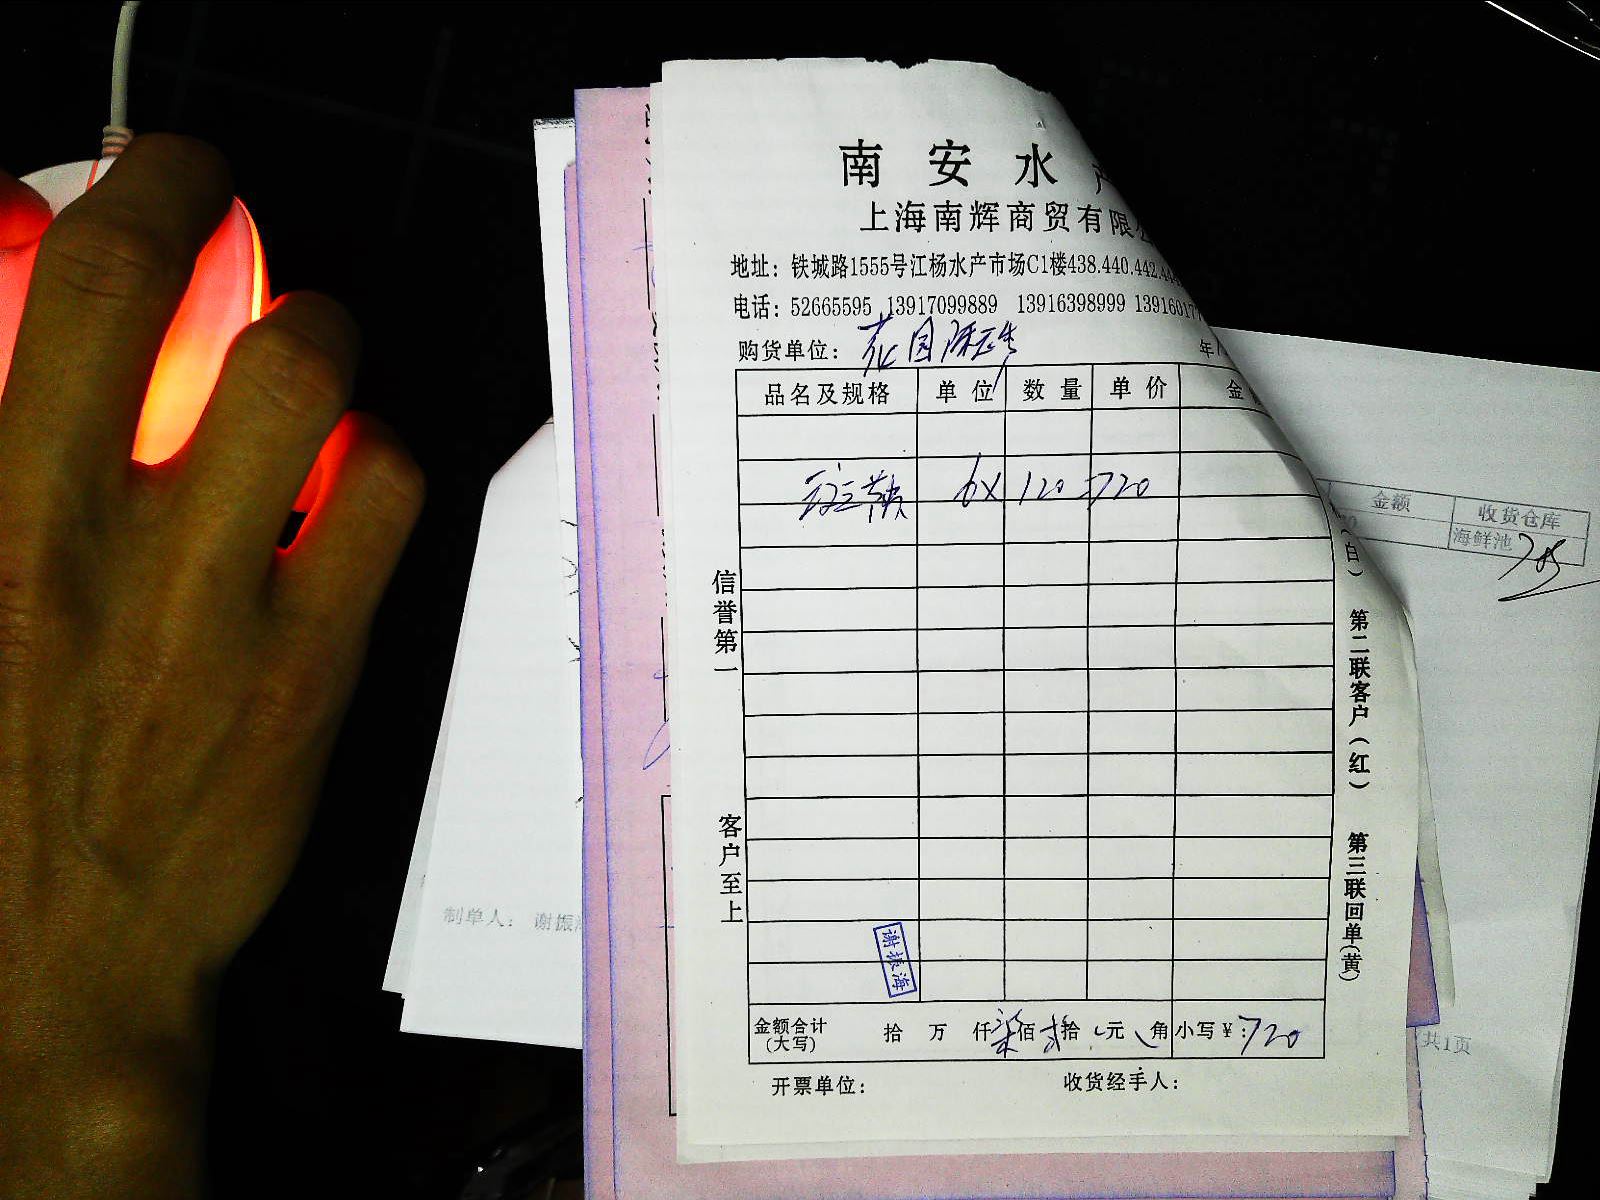 南安水产
上海南辉商贸有限公
地址：铁城路1555号江杨水产市场C1楼438.440.442.444
电话：52665595 13917099889 13916398999 1391601
购货单位：花园 年
品名及规格 单位 数量 单价 金额
6X 120 =720
信誉第一
客户至上
谢振海
金额合计(大写) 拾 万 仟柒佰贰拾 元 角 小写￥：720
开票单位： 收货经手人：
(白) 第二联客户(红) 第三联回单(黄)
金额 收货仓库
海鲜池
制单人： 谢振海
共1页